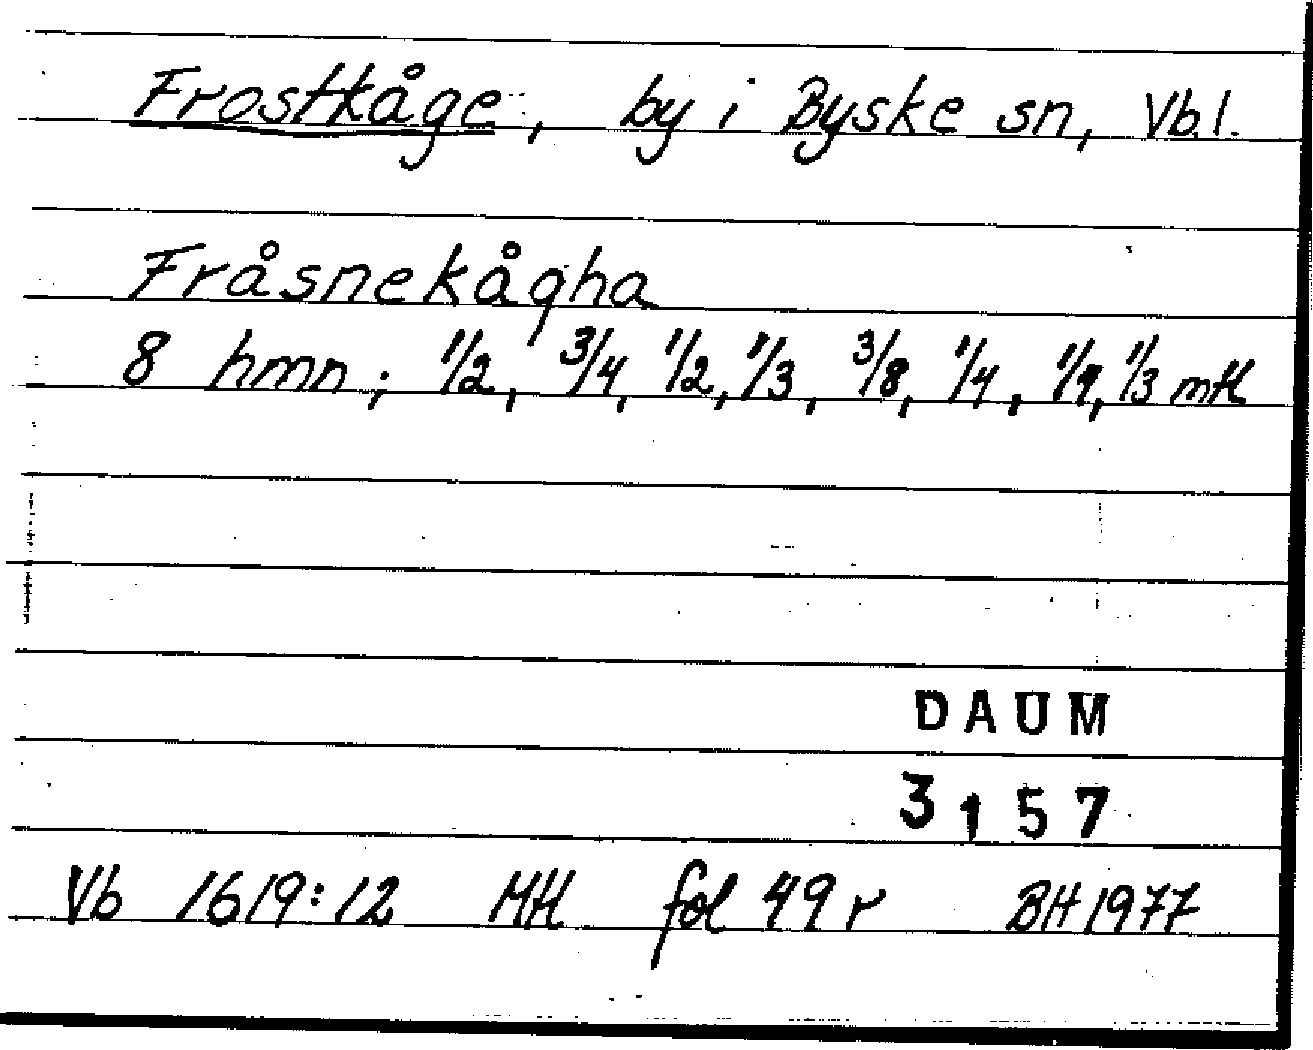 Frostkåge, by i Byske sn, Vb.l.
Fråsnekågha
8 hmn; 1/2, 3/4, 1/2, 1/3, 3/8, 1/4, 1/9, 1/3 mtl
DAUM
3157
Vb 1619:12 MtL fol 49 r BH 1977